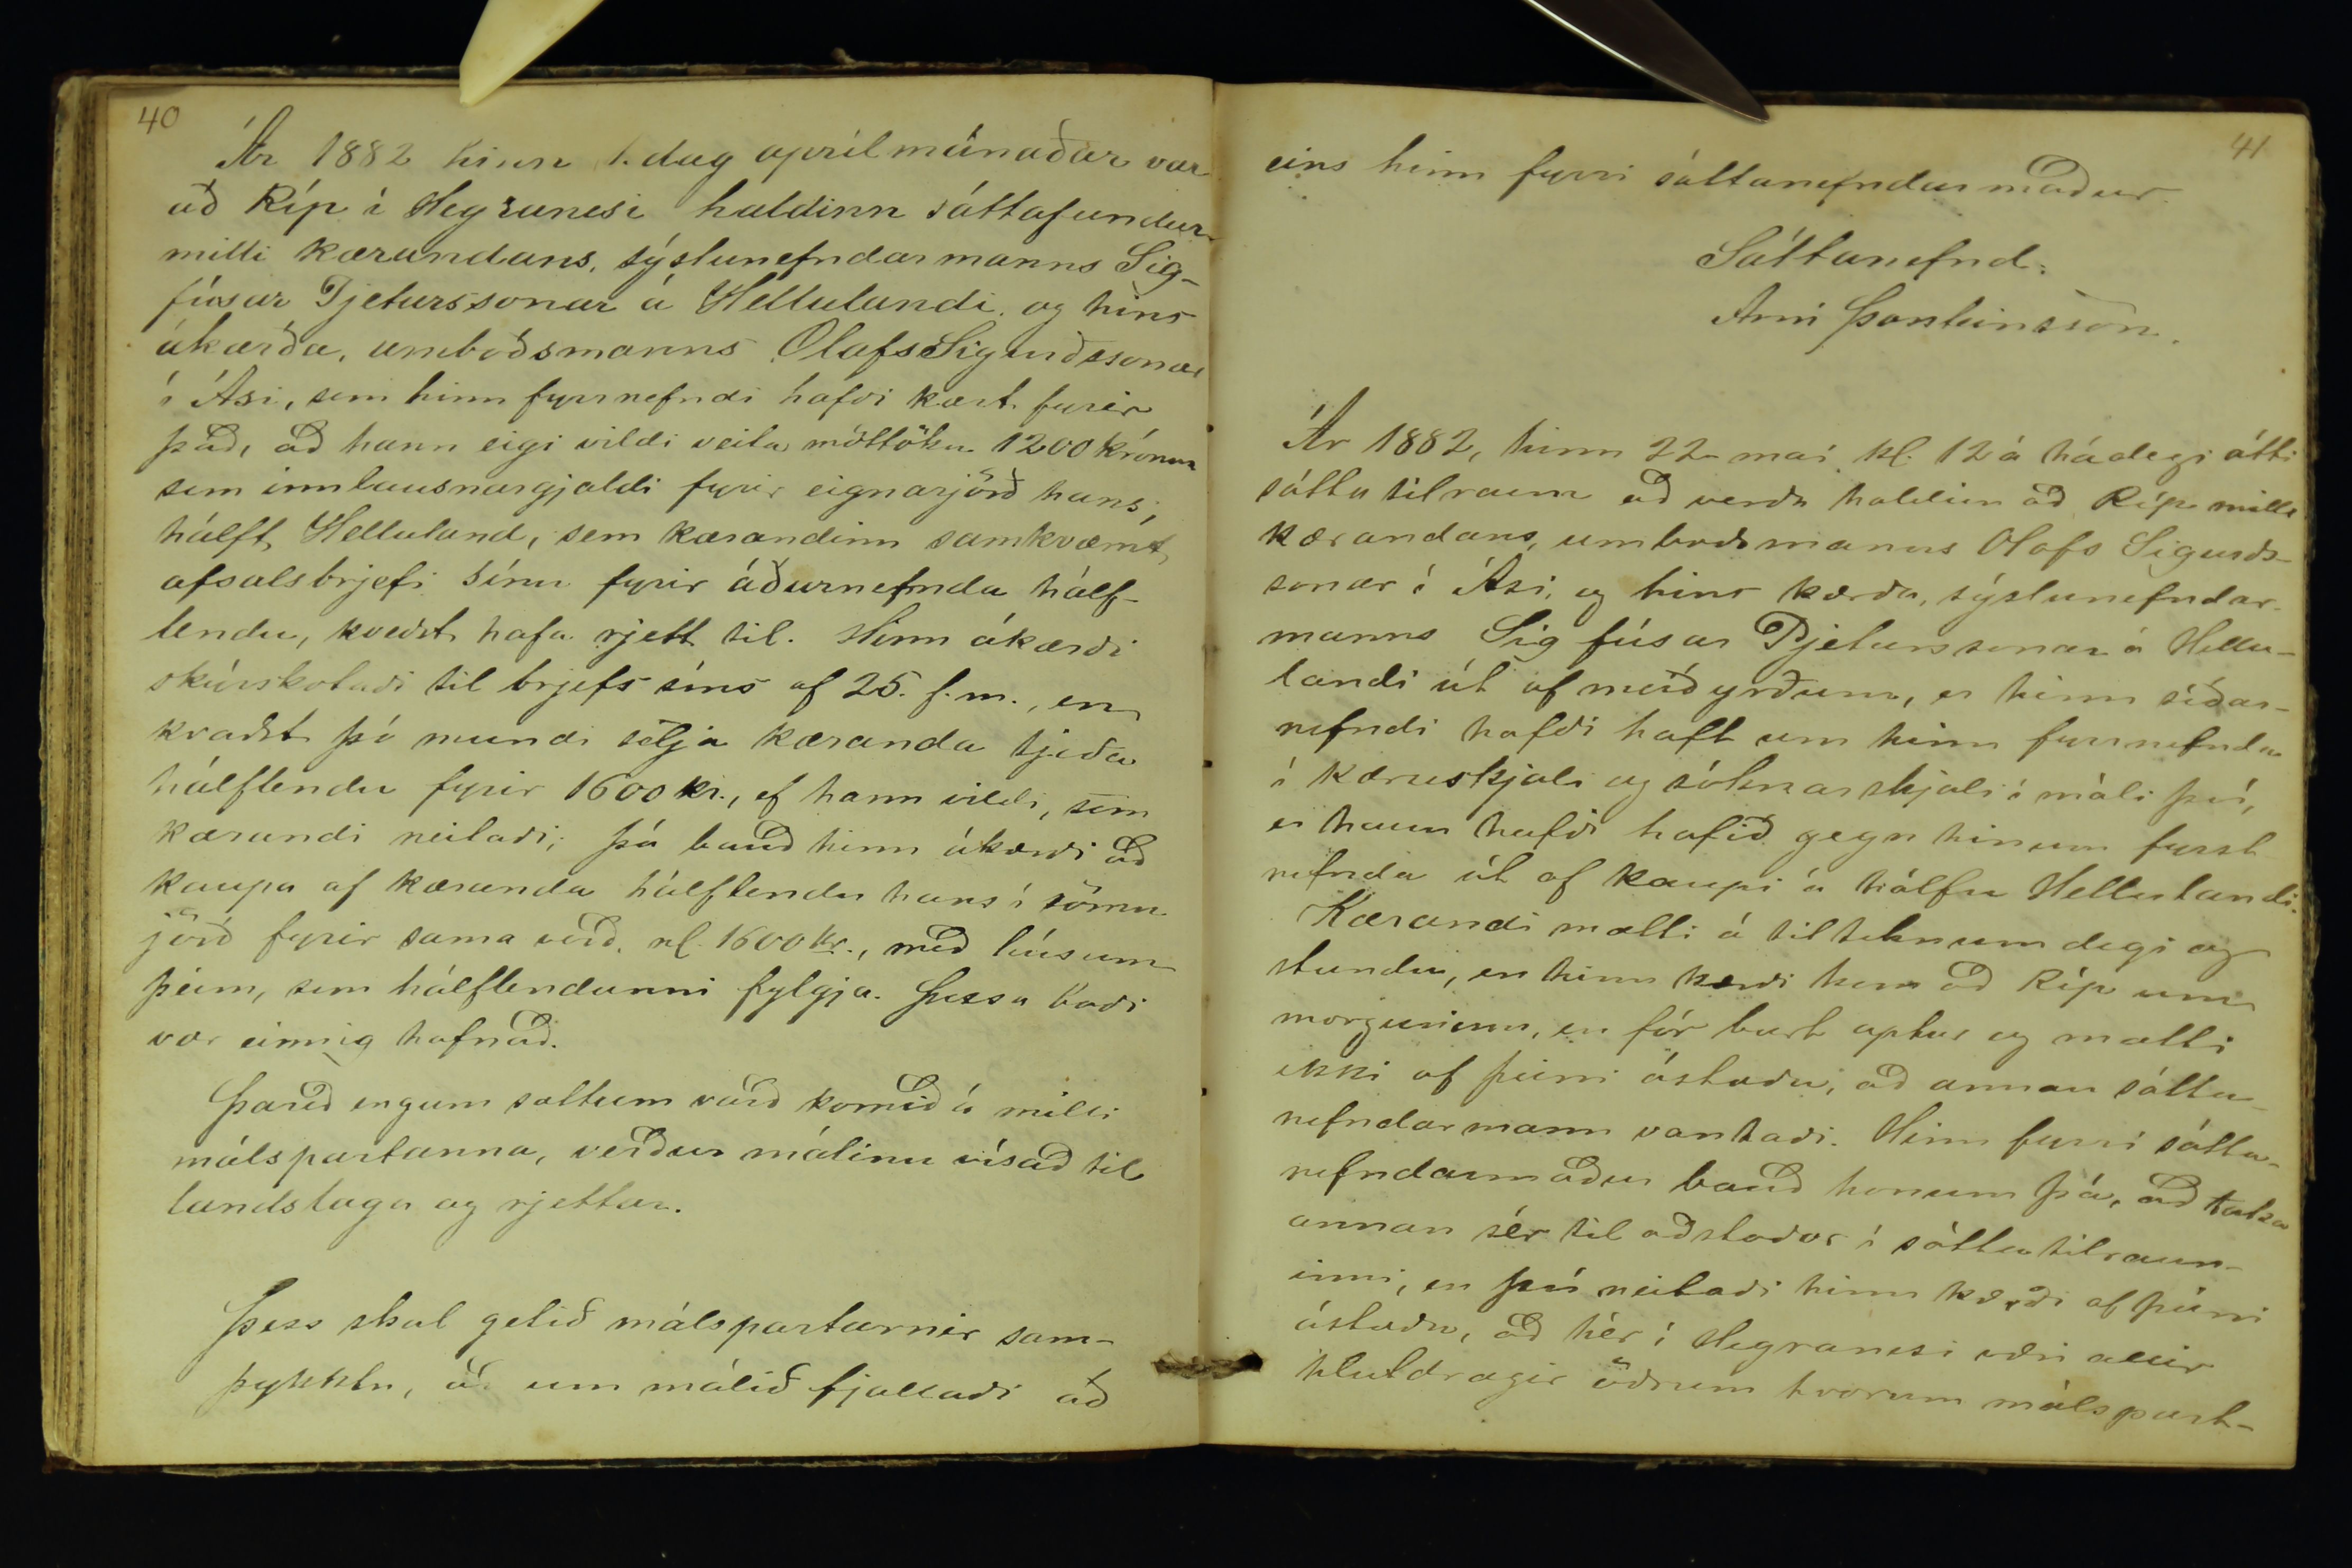 40
Ár 1882 hinn 1. dag aprílmánaðar var
að Ríp í Hegranesi haldinn sáttafundur
milli kærandans, sýslunefndarmanns Sig-
fúsar Pjeturssonar á Hellulandi, og hins
ákærða, umboðsmanns Olafs Sigurðssonar
í Ási, sem hinn fyrrnefndi hafði kært fyrir
það, að hann eigi vildi veita móttöku 1200 krónum
sem innlausnargjaldi fyrir eignarjörð hans,
hálft Helluland, sem kærandinn samkvæmt
afsalsbrjefi sínu fyrir áðurnefnda hálf-
lendu, kveðst hafa rjett til. Hinn ákærði
skírskotaði til brjefs síns af 25. f. m., en
kvaðst þó mundi selja kæranda tjeða
hálflendu fyrir 1600 kr., ef hann vildi, sem
kærandi neitaði; þá bauð hinn ákærði að
kaupa af kæranda hálflendu hans í sömu
jörð fyrir sama verð, nl. 1600 kr., með húsum
þeim, sem hálflendunni fylgja. Þessu boði
var einnig hafnað.
Þareð engum sáttum varð komið á milli
málspartanna, verður málinu vísað til
landslaga og rjettar.
Þess skal getið málspartarnir sam-
þykktu, að um málið fjallaði að
41
eins hinn fyrri sáttanefndarmaður.
Sáttanefnd:
Árni Þorsteinsson.
Ár 1882, hinn 22. maí kl. 12 á hádegi átti
sáttatilraun að verða haldin að Ríp milli
kærandans, umboðsmanns Olafs Sigurðs-
sonar í Ási, og hins kærða, sýslunefndar-
manns Sigfúsar Pjeturssonar á Hellu-
landi út af meiðyrðum, er hinn síðar-
nefndi hafði haft um hinn fyrrnefnda
í kæruskjali og sóknarskjali í máli því,
er hann hafði hafið gegn hinum fyrst
nefnda út af kaupi á hálfu Hellulandi.
Kærandi mætti á tilteknum degi og
stundu, en hinn kærði kom að Ríp um
morguninn, en fór burt aptur og mætti
ekki af þeirri ástæðu, að annan sátta-
nefndarmann vantaði. Hinn fyrri sátta-
nefndarmaður bauð honum þá, að taka
annan sér til aðstoðar í sáttatilraun-
inni, en því neitaði hinn kærði af þeirri
ástæðu, að hér í Hegranesi væri allir
hlutdrægir öðrum hvorum málspart-